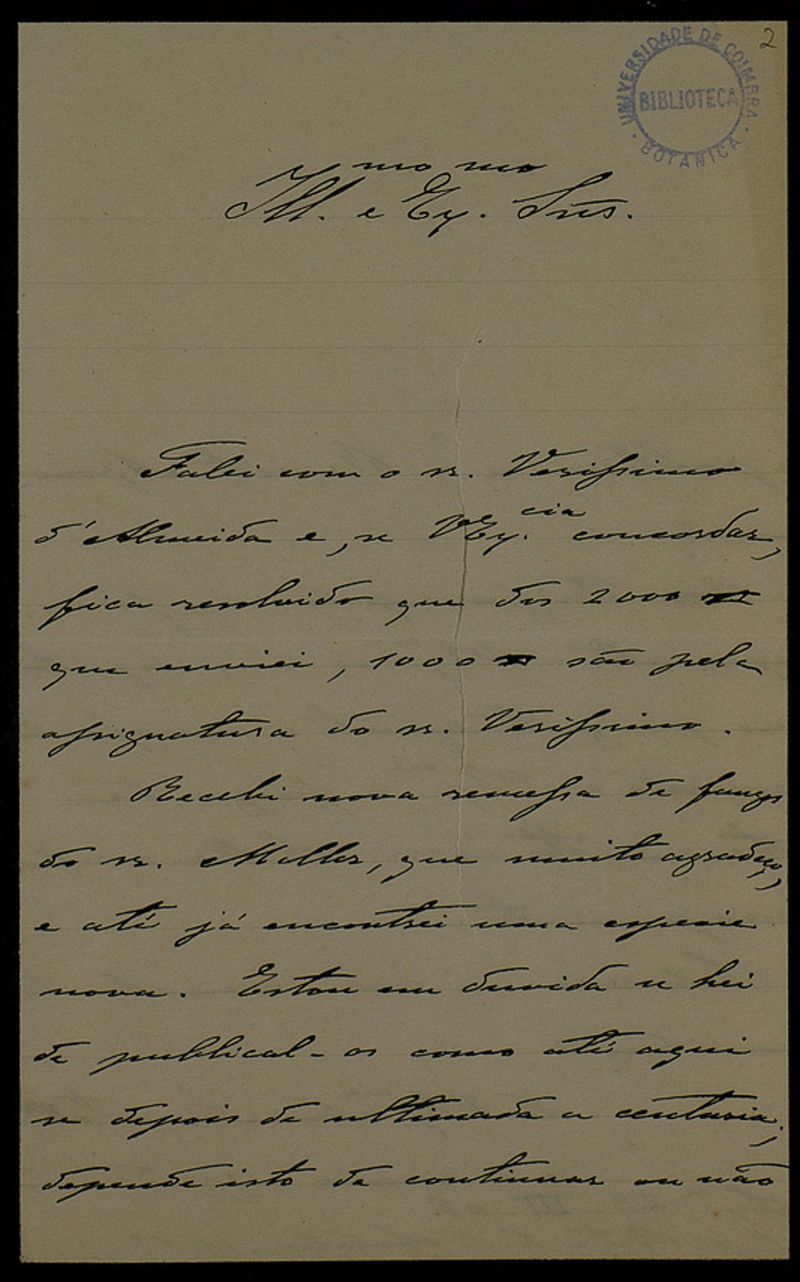 2
UNIVERSIDADE DE COIMBRA
BIBLIOTECA
BOTANICA
Ill.mo e Ex.mo Snr.
Falei com o sr. Verissimo
d'Almeida e, se VEx.cia concordar,
fica resolvido que dos 2000 rs
que enviei, 1000 rs são pela
assignatura do sr. Verissimo.
Recebi nova remessa de fungos
do sr. Moller, que muito agradeço,
e até já encontrei uma especie
nova. Estou em duvida se hei
de publical-os como até aqui
se depois de ultimada a centuria;
depende isto de continuar ou não